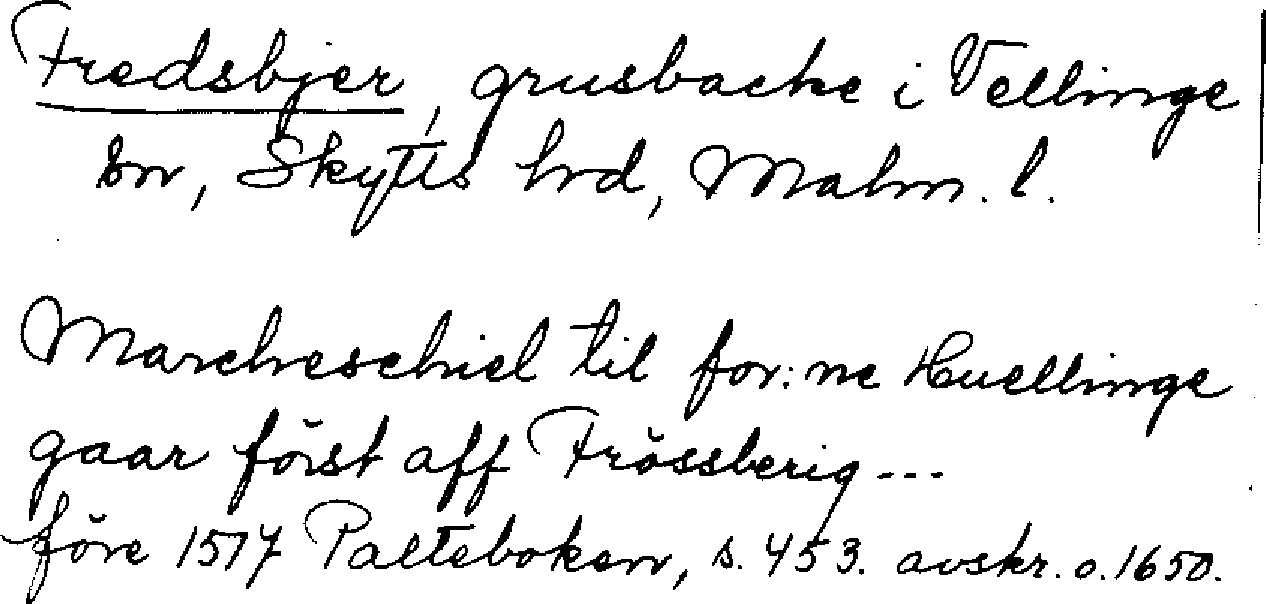 Fredsbjer, grusbacke i Vellinge
sn, Skytts hrd, Malm. l.
Marcheschiel til for:ne Huellinge
gaar först aff Frössberig ---
före 1517 Palteboken, s. 453. avskr. o. 1650.